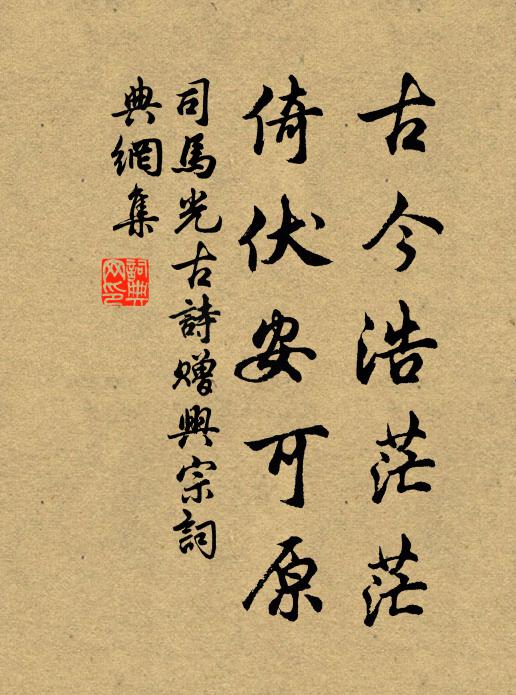 古今浩茫茫
倚伏安可原
司馬光古詩贈興宗詞
典網集
詞典網印